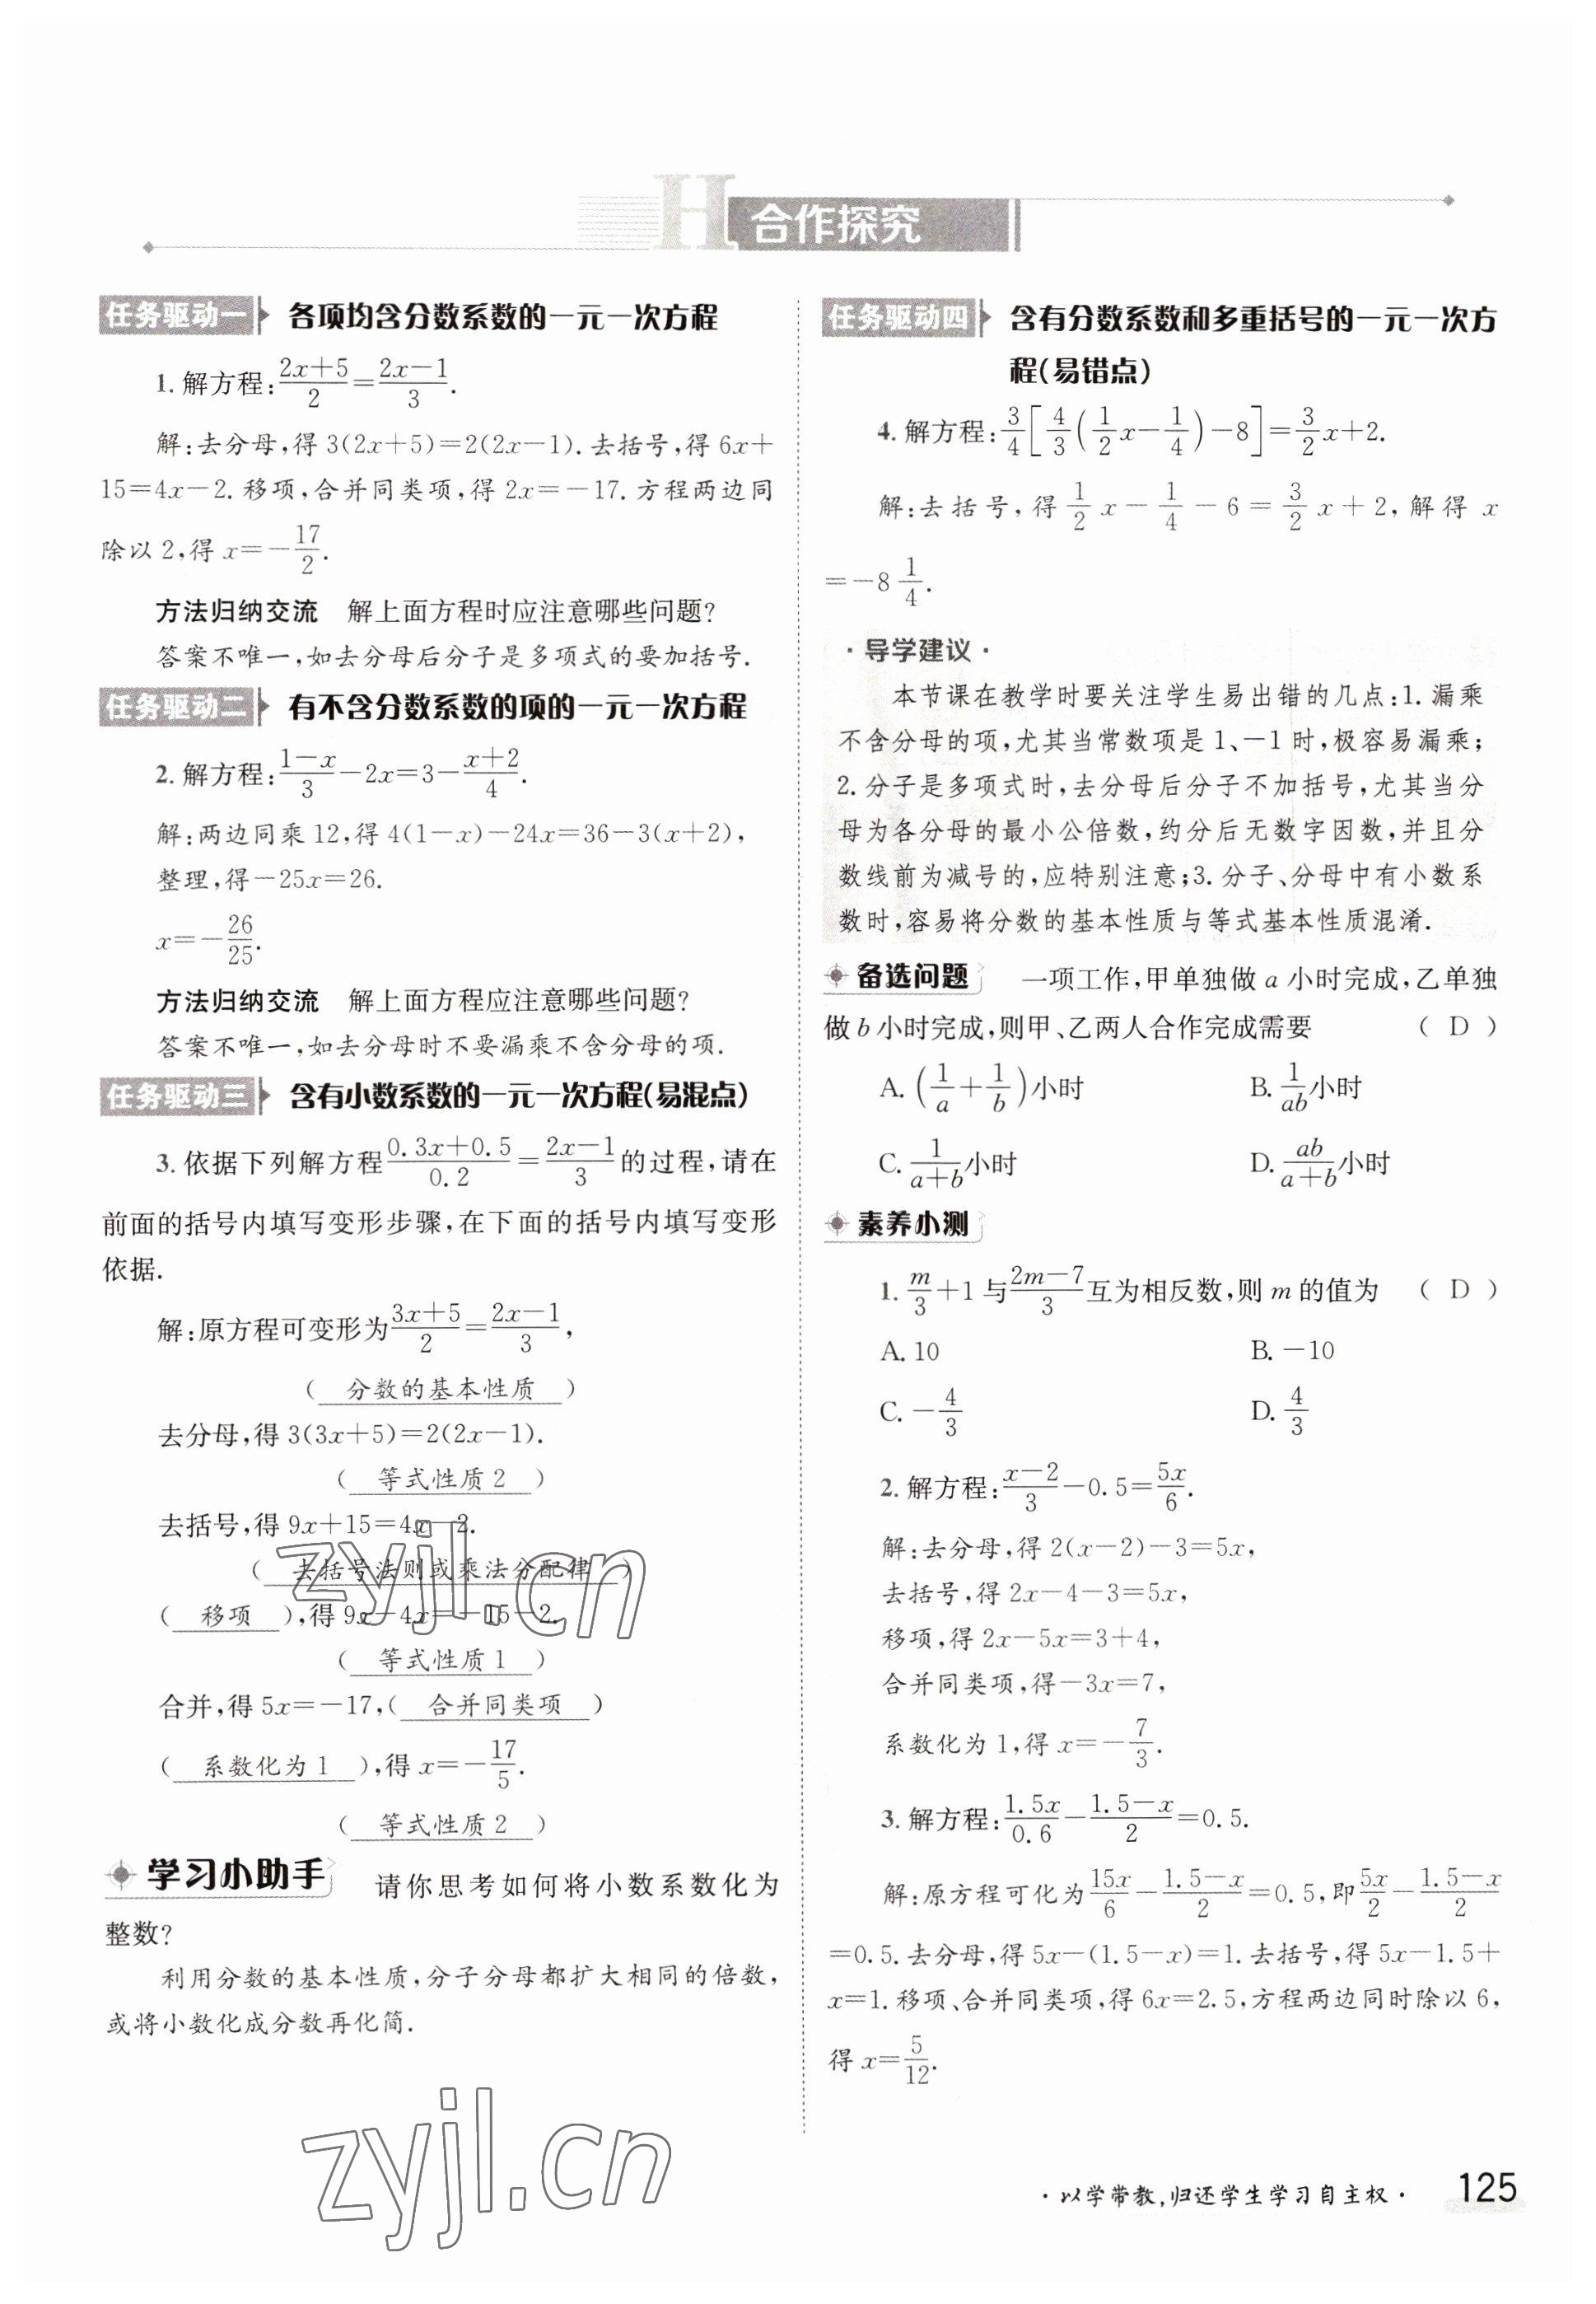 H 合作探究
任务驱动一 各项均含分数系数的一元一次方程
1. 解方程:\frac{2x+5}{2}=\frac{2x-1}{3}.
解:去分母,得 3(2x+5)=2(2x-1).去括号,得 6x+
15=4x-2.移项,合并同类项,得 2x=-17.方程两边同
除以 2,得 x=-\frac{17}{2}.
方法归纳交流 解上面方程时应注意哪些问题?
答案不唯一,如去分母后分子是多项式的要加括号.
任务驱动二 有不含分数系数的项的一元一次方程
2. 解方程:\frac{1-x}{3}-2x=3-\frac{x+2}{4}.
解:两边同乘 12,得 4(1-x)-24x=36-3(x+2),
整理,得-25x=26.
x=-\frac{26}{25}.
方法归纳交流 解上面方程应注意哪些问题?
答案不唯一,如去分母时不要漏乘不含分母的项.
任务驱动三 含有小数系数的一元一次方程(易混点)
3. 依据下列解方程\frac{0.3x+0.5}{0.2}=\frac{2x-1}{3}的过程,请在
前面的括号内填写变形步骤,在下面的括号内填写变形
依据.
解:原方程可变形为\frac{3x+5}{2}=\frac{2x-1}{3},
( 分数的基本性质 )
去分母,得 3(3x+5)=2(2x-1).
( 等式性质 2 )
去括号,得 9x+15=4x-2.
( 去括号法则或乘法分配律 )
( 移项 ),得 9x-4x=-15-2.
( 等式性质 1 )
合并,得 5x=-17,( 合并同类项 )
( 系数化为 1 ),得 x=-\frac{17}{5}.
( 等式性质 2 )
学习小助手 请你思考如何将小数系数化为
整数?
利用分数的基本性质,分子分母都扩大相同的倍数,
或将小数化成分数再化简.
任务驱动四 含有分数系数和多重括号的一元一次方
程(易错点)
4. 解方程:\frac{3}{4}[\frac{4}{3}(\frac{1}{2}x-\frac{1}{4})-8]=\frac{3}{2}x+2.
解:去括号,得 \frac{1}{2}x-\frac{1}{4}-6=\frac{3}{2}x+2,解得 x
=-8\frac{1}{4}.
· 导学建议 ·
本节课在教学时要关注学生易出错的几点:1. 漏乘
不含分母的项,尤其当常数项是 1、-1 时,极容易漏乘;
2. 分子是多项式时,去分母后分子不加括号,尤其当分
母为各分母的最小公倍数,约分后无数字因数,并且分
数线前为减号的,应特别注意;3. 分子、分母中有小数系
数时,容易将分数的基本性质与等式基本性质混淆.
备选问题 一项工作,甲单独做 a 小时完成,乙单独
做 b 小时完成,则甲、乙两人合作完成需要 ( D )
A. (\frac{1}{a}+\frac{1}{b})小时 B. \frac{1}{ab}小时
C. \frac{1}{a+b}小时 D. \frac{ab}{a+b}小时
素养小测
1. \frac{m}{3}+1 与\frac{2m-7}{3}互为相反数,则 m 的值为 ( D )
A. 10 B. -10
C. -\frac{4}{3} D. \frac{4}{3}
2. 解方程:\frac{x-2}{3}-0.5=\frac{5x}{6}.
解:去分母,得 2(x-2)-3=5x,
去括号,得 2x-4-3=5x,
移项,得 2x-5x=3+4,
合并同类项,得-3x=7,
系数化为 1,得 x=-\frac{7}{3}.
3. 解方程:\frac{1.5x}{0.6}-\frac{1.5-x}{2}=0.5.
解:原方程可化为\frac{15x}{6}-\frac{1.5-x}{2}=0.5,即\frac{5x}{2}-\frac{1.5-x}{2}
=0.5.去分母,得 5x-(1.5-x)=1.去括号,得 5x-1.5+
x=1.移项、合并同类项,得 6x=2.5,方程两边同时除以 6,
得 x=\frac{5}{12}.
zyjl.cn
zyjl.cn
· 以学带教,归还学生学习自主权 · 125